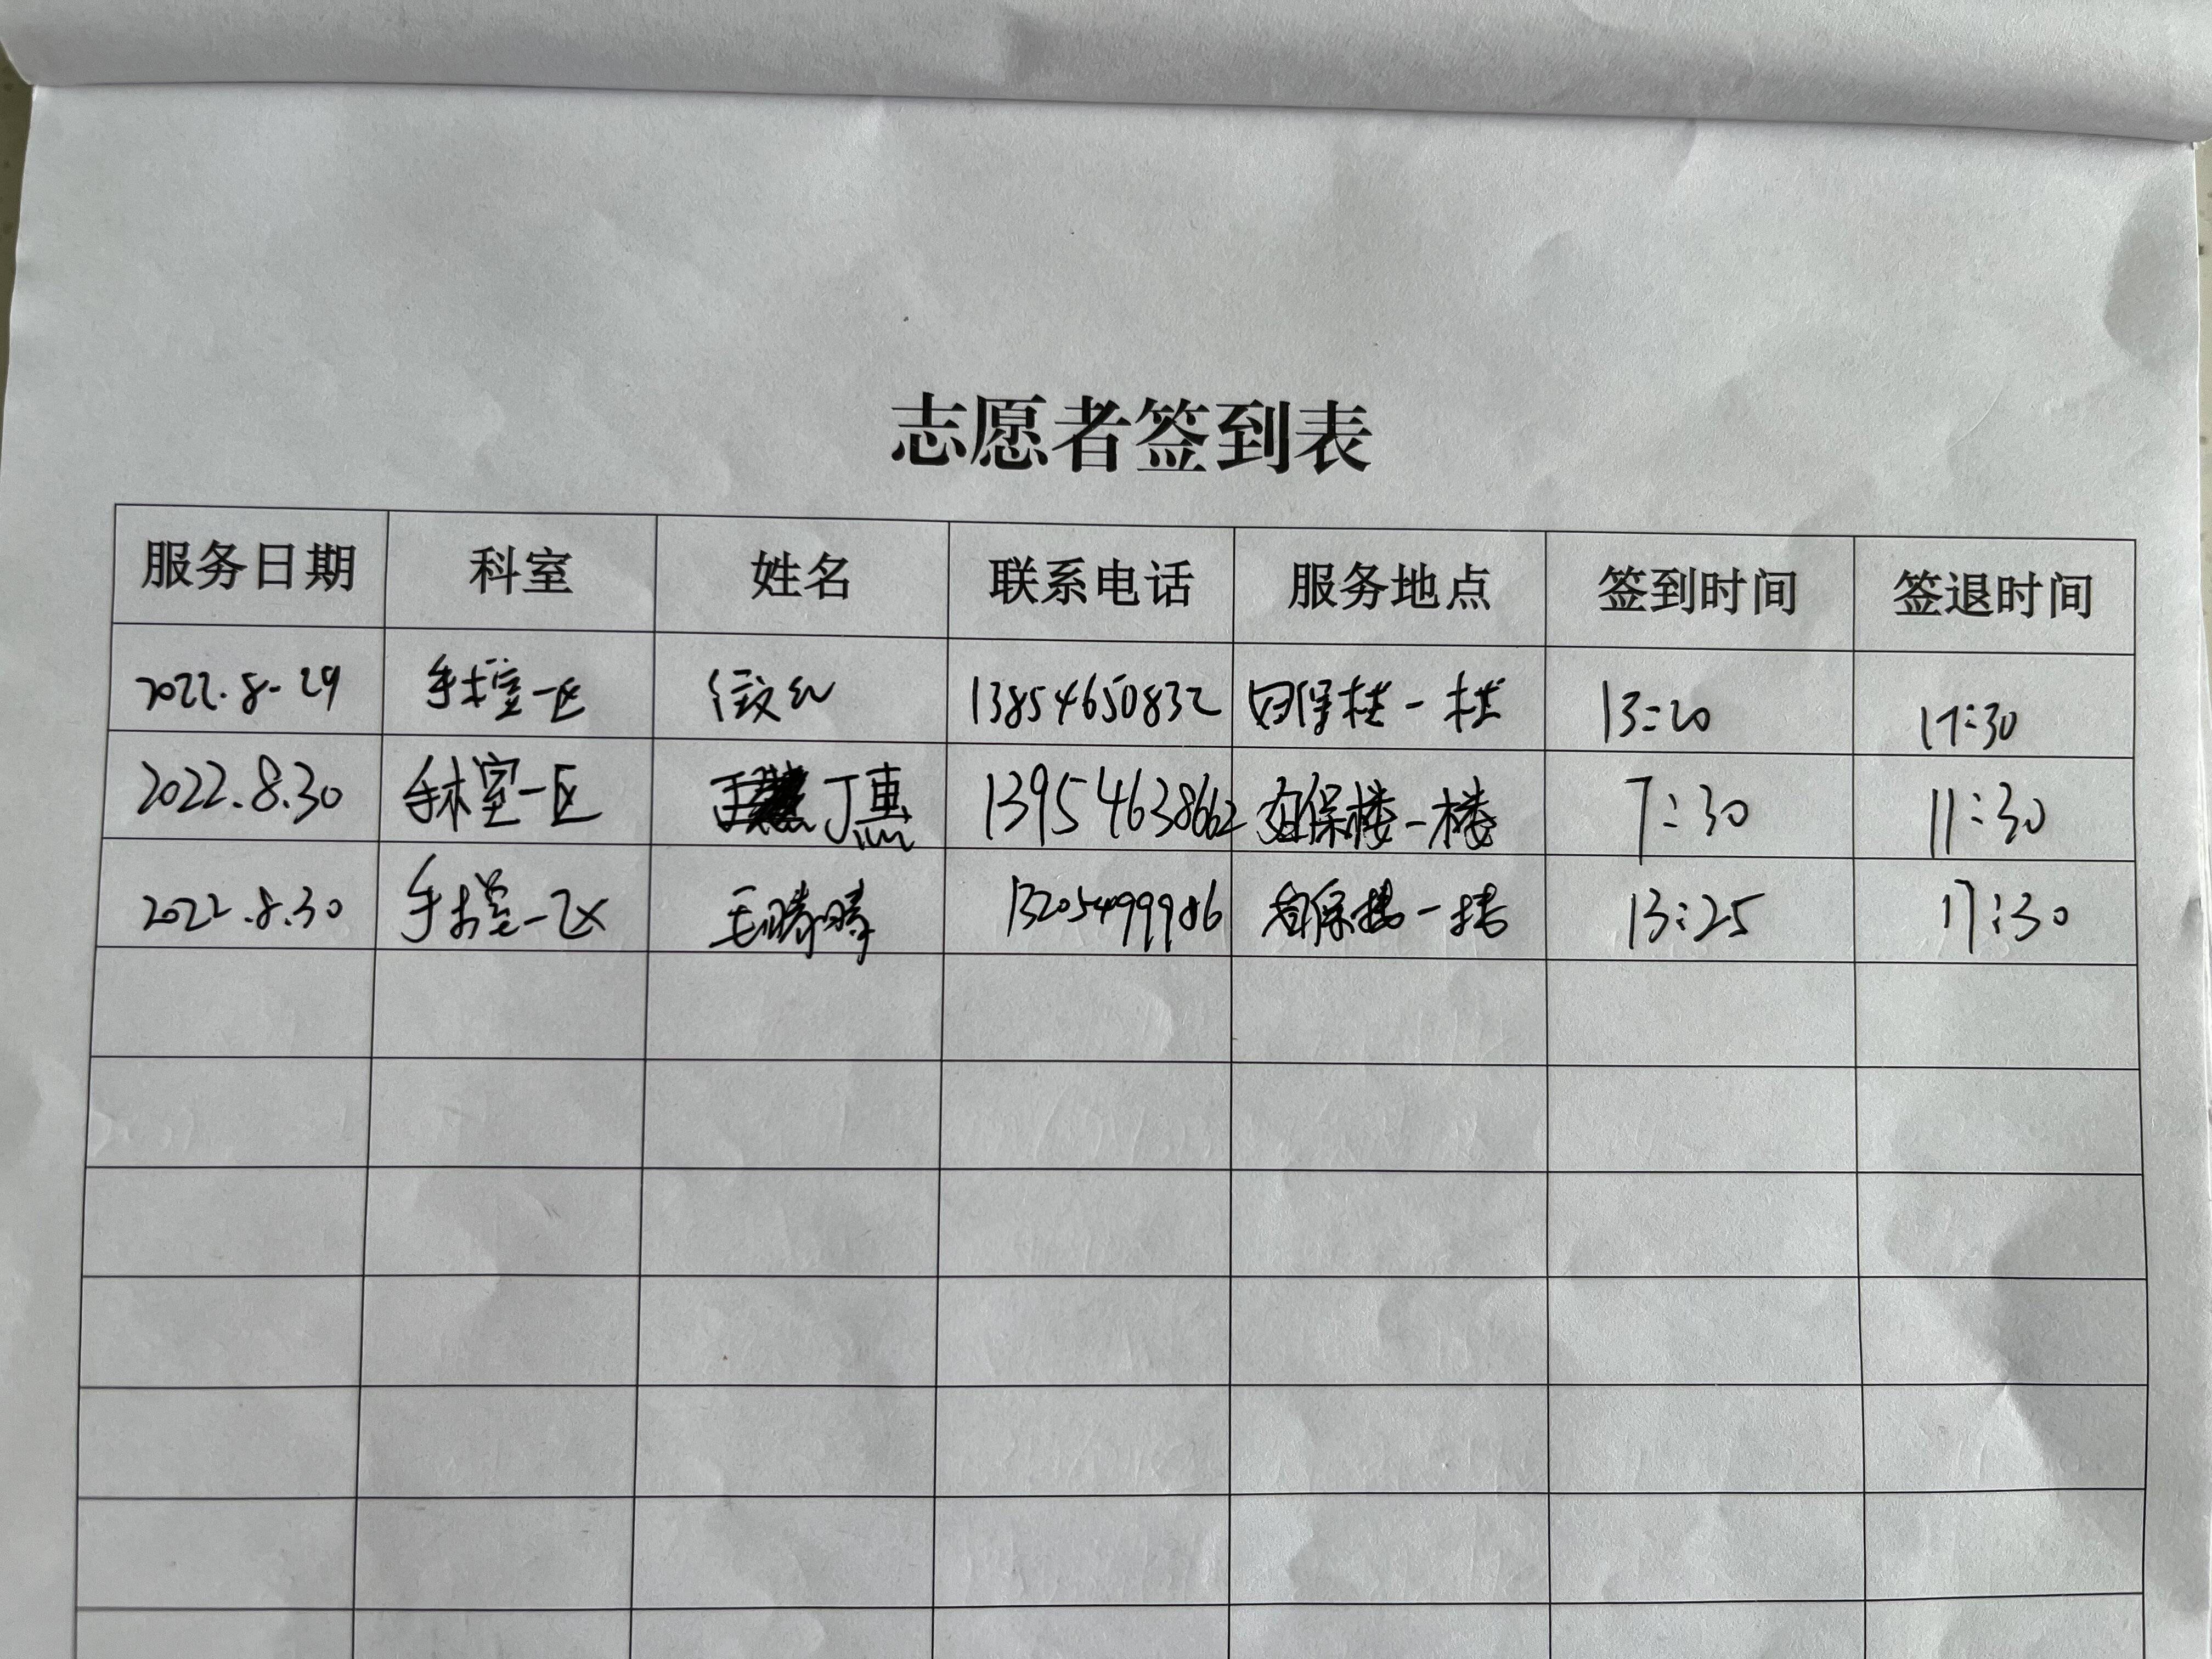 志愿者签到表
服务日期 科室 姓名 联系电话 服务地点 签到时间 签退时间
2022.8.29 手术室一区 13854650832 妇保楼一楼 13:20 17:30
2022.8.30 手术室一区 丁惠 13954638662 妇保楼一楼 7:30 11:30
2022.8.30 手术室一区 毛晴晴 妇保楼一楼 13:25 17:30